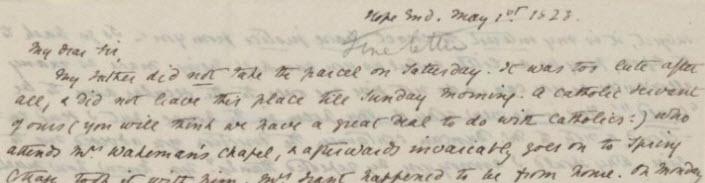 Hope End. May 1st 1828.
Fine letter
My dear Sir
My Father did not take the parcel on Saturday. It was too late after
all, & did not leave this place till Sunday morning. A catholic servant
of ours (you will think we have a great deal to do with catholics!) who
attends Mrs Wakeman's chapel, & afterwards invariably goes on to Spring
took it with him. Mrs Grant happened to be from home. On Monday